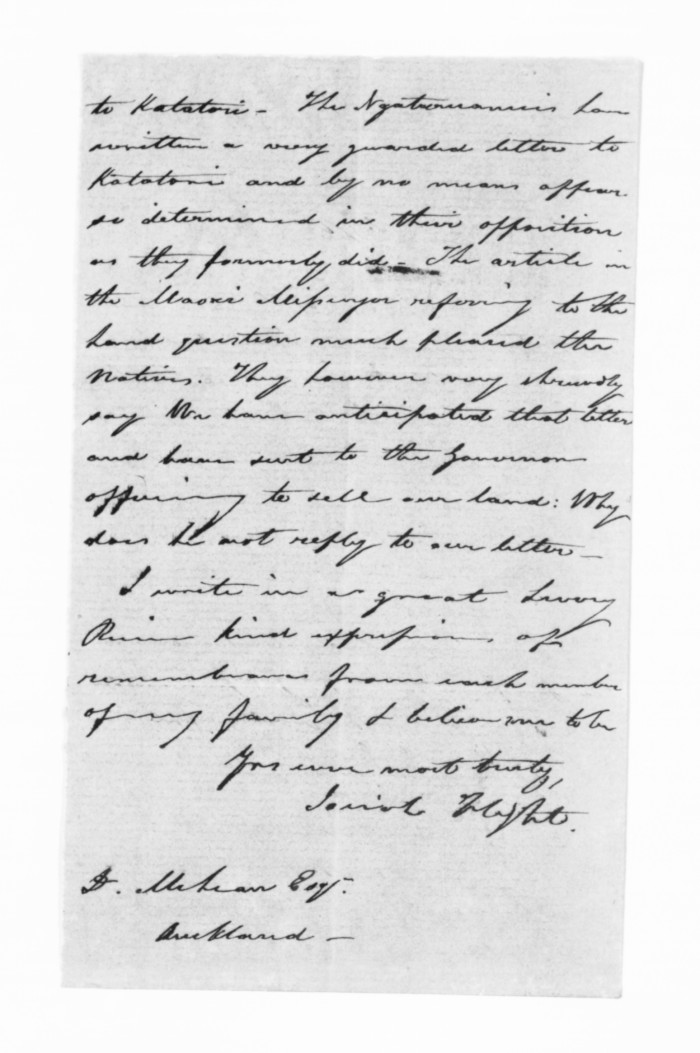 to Katatori - The Ngatiruanuis have
written a very guarded letter to
Katatori and by no means appear
so determined in their opposition
as they formerly did - The article in
the Maori Messenger referring to the
land question much pleased the
Natives. They however very shrewdly
say We have anticipated that letter
and have sent to the Governor
offering to sell our land: Why
does he not reply to our letter -
I write in a great hurry
Receive kind expressions of
remembrance from each member
of my family & believe me to be
Yrs ever most truly,
Josiah Flight.
D. McLean Esqr.
Auckland -